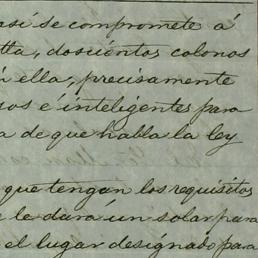 así se compromete á
tta, dosciéntos colonos
ella, precisamente
sos é inteligentes para
a de que habla la ley
que tengan los requisitos
le dará un solar para
el lugar designado para